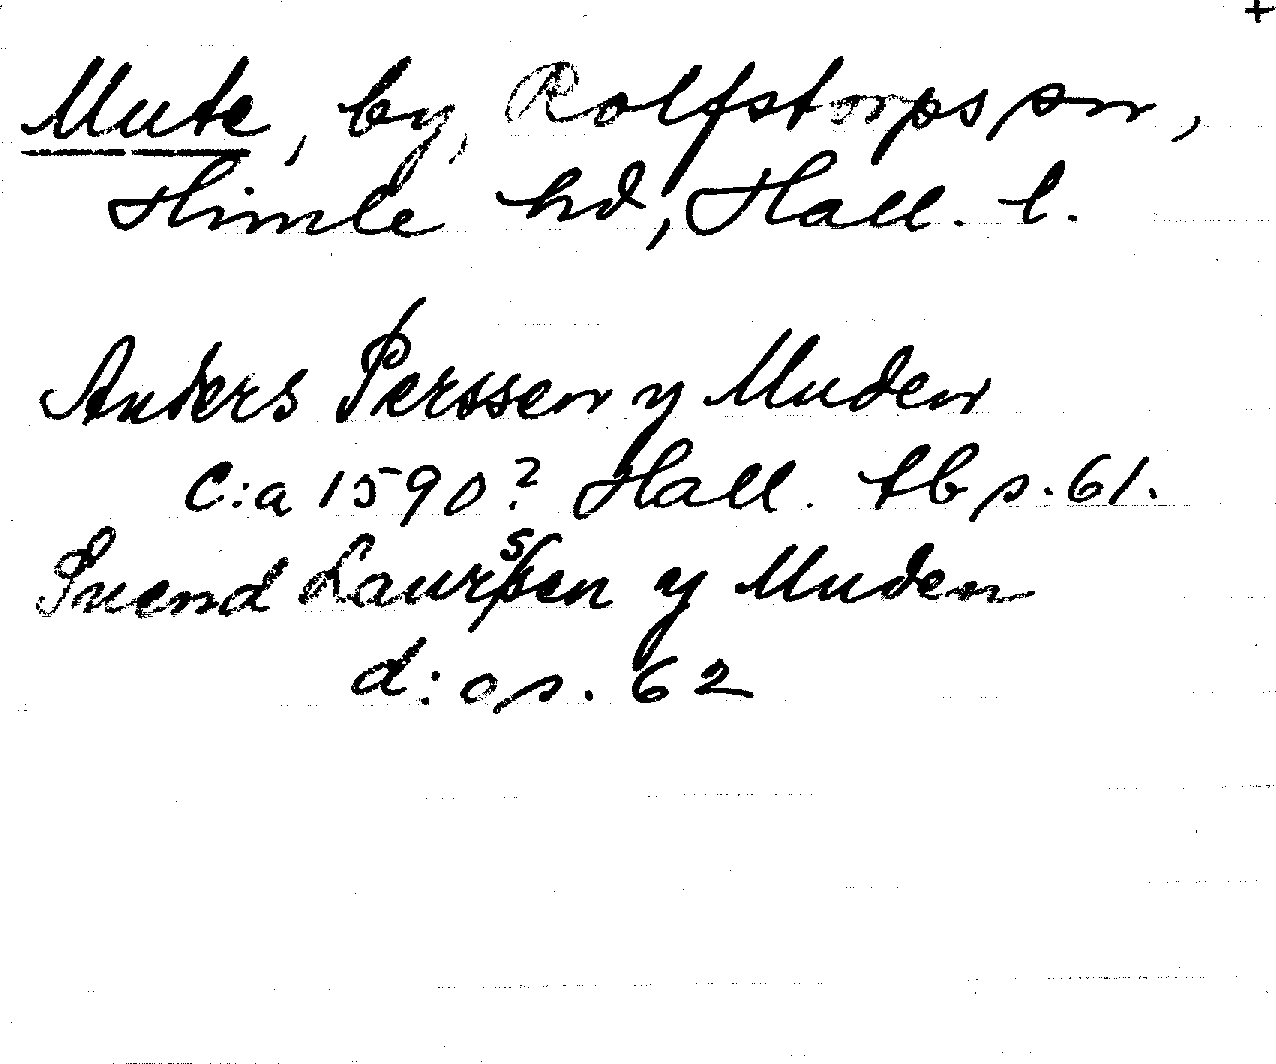 +
Mute, by, Rolfstorps sn,
Himle hd, Hall. l.
Anders Perssen y Muden
c:a 1590? Hall. tb s. 61.
Suend Laurssen y Muden
d:o s. 62